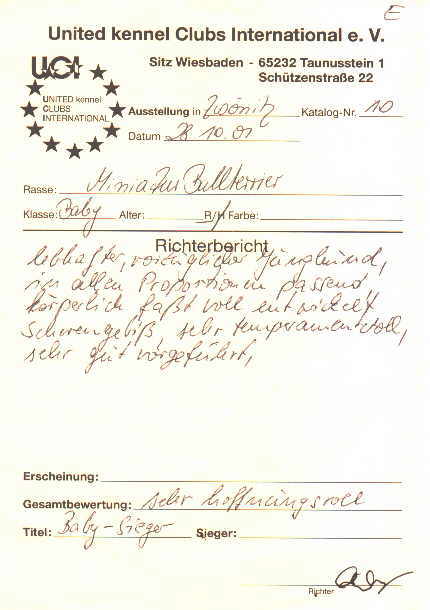 E
United kennel Clubs International e. V.
UCI
Sitz Wiesbaden - 65232 Taunusstein 1
Schützenstraße 22
UNITED kennel
CLUBS
INTERNATIONAL
Ausstellung in Zwönitz Katalog-Nr. 10
Datum 28.10.01
Rasse: Miniatur Bullterrier
Klasse: Baby Alter: R/H Farbe:
Richterbericht
lebhafter, vorzüglicher Junghund,
in allen Proportionen passend,
körperlich faßt voll entwickelt
Scherengebiß, sehr temperamentvoll,
sehr gut vorgeführt,
Erscheinung:
Gesamtbewertung: sehr hoffnungsvoll
Titel: Baby-Sieger Sieger:
Richter